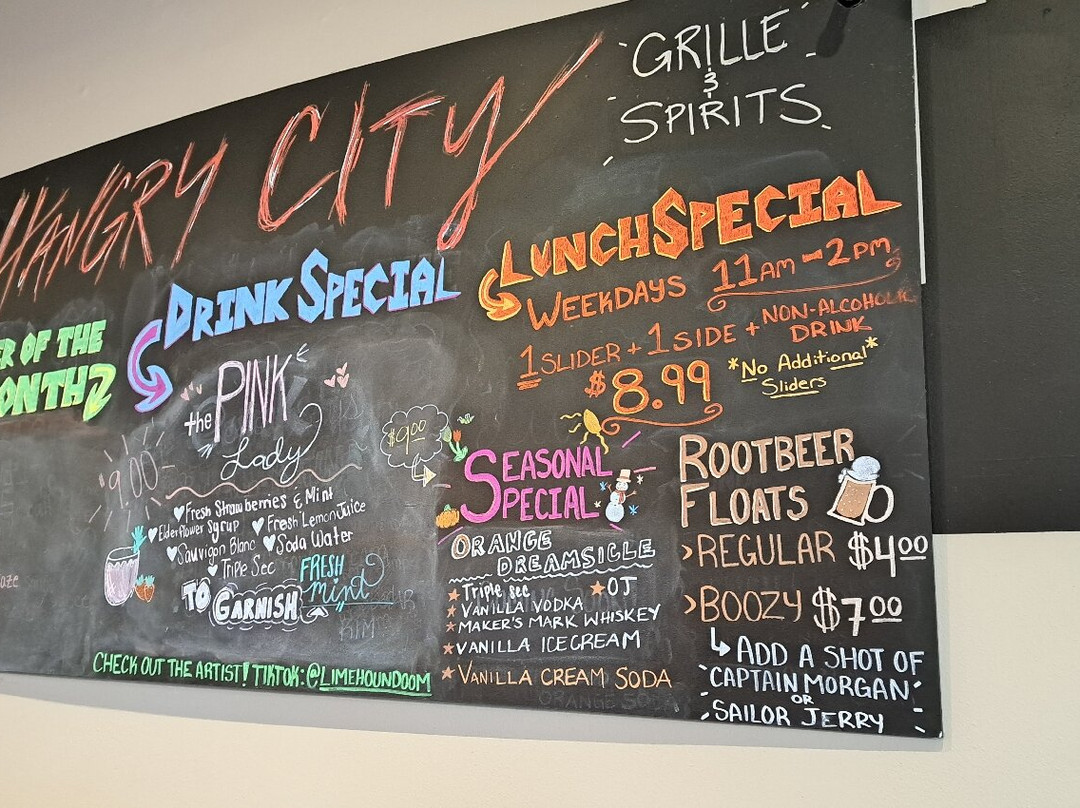 HANGRY CITY
GRILLE
&
SPIRITS
ER OF THE
MONTH
DRINK SPECIAL
the PINK
Lady
9.00
Fresh Strawberries & Mint
Elderflower Syrup Fresh Lemon Juice
Sauvigon Blanc Soda Water
Triple Sec
TO GARNISH
FRESH
mint
CHECK OUT THE ARTIST! TIKTOK: @LIMEHOUNDOOM
LUNCH SPECIAL
WEEKDAYS 11AM-2PM
1 SLIDER + 1 SIDE + NON-ALCOHOLIC
DRINK
$8.99
*No Additional*
Sliders
$9.00
SEASONAL
SPECIAL
ORANGE
DREAMSICLE
Triple sec OJ
VANILLA VODKA
MAKER'S MARK WHISKEY
VANILLA ICECREAM
VANILLA CREAM SODA
ROOTBEER
FLOATS
>REGULAR $4.00
>BOOZY $7.00
ADD A SHOT OF
CAPTAIN MORGAN
OR
SAILOR JERRY